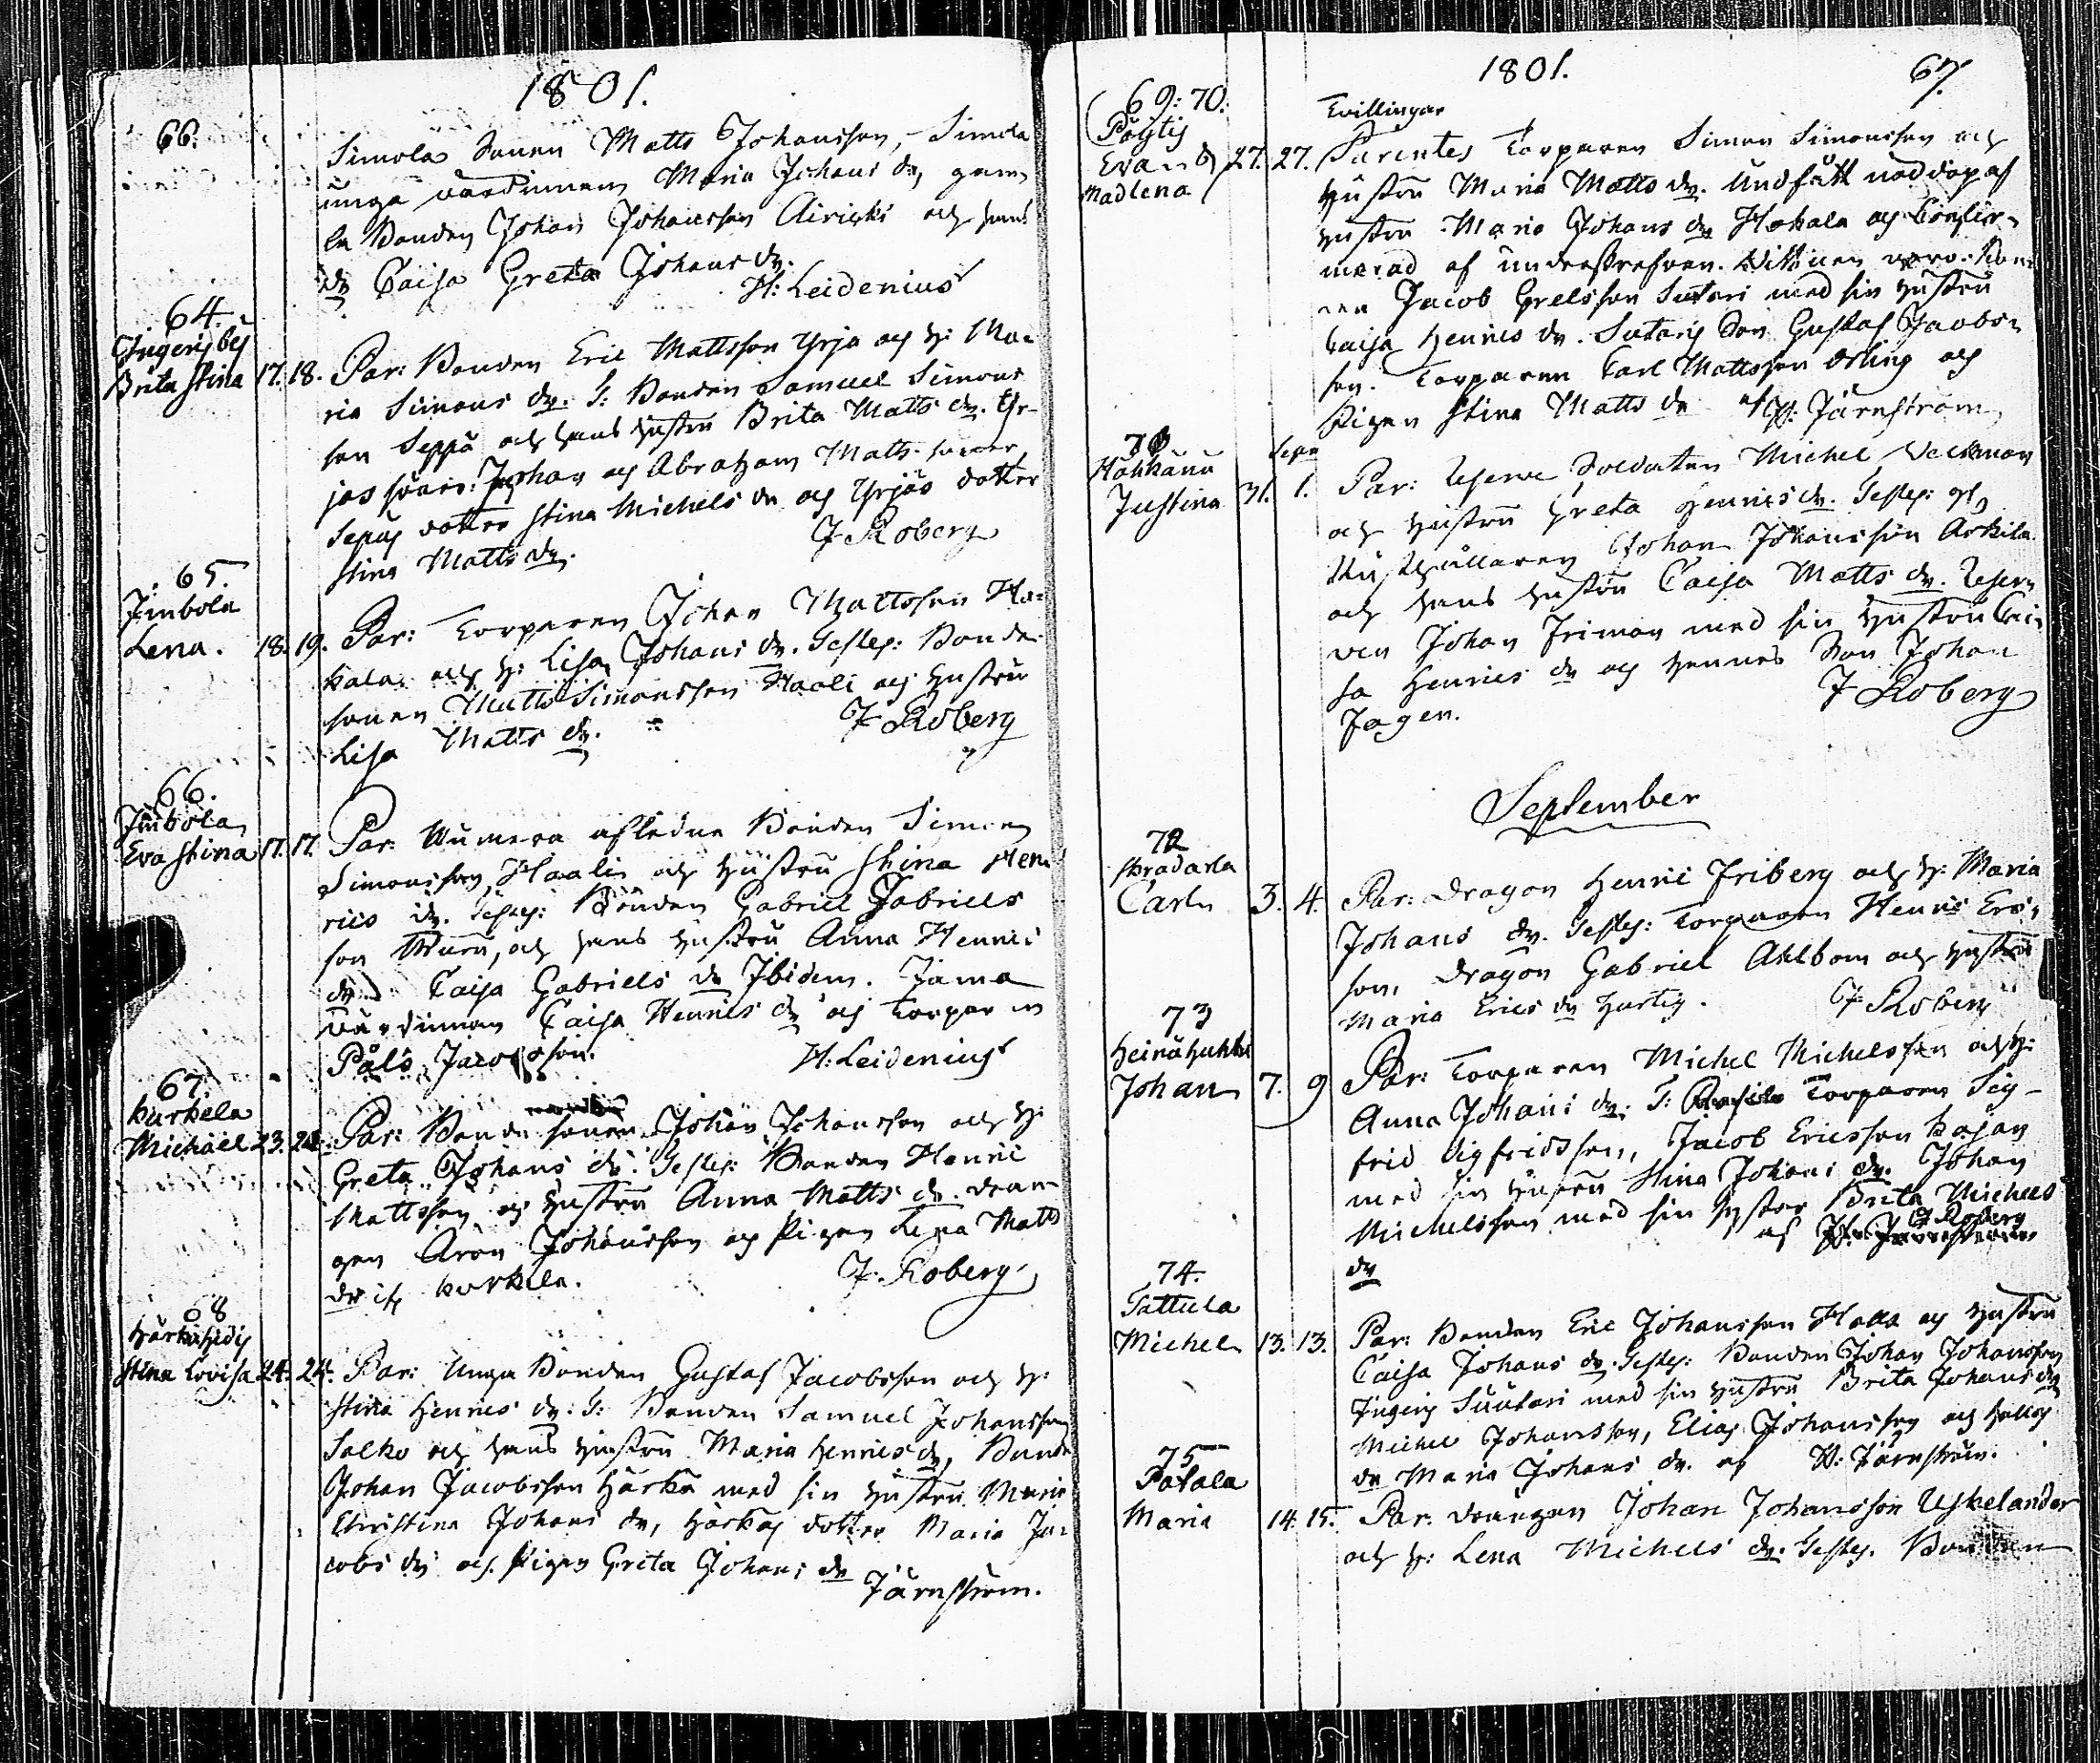 1801.
66.
Simola Sonen Matts Johansson, Simola
unga värdinnan Maria Johans dr, gam
la Bonden Johan Johansson Airicki och hans
dr Caisa Greta Johans dr.
H: Leidenius
64.
Ingeris by
Brita Stina 17. 18. Par: Bonden Eric Mattsson Yrjä och h: Ma-
ria Simons dr. T: Bonden Samuel Simons
son Seppä och hans hustru Brita Matts dr. Yr-
jas söner: Johan och Abraham Matts söner
Sepäs dotter Stina Michels dr och Yrjäs dotter
Stina Matts dr.
J Roberg
65.
Junbola
Lena. 18. 19. Par: Torparen Johan Mattsson Ha-
kala och h: Lisa Johans dr. Testes: Bonde
sonen Matts Simonsson Haali och hustru
Lisa Matts dr.
J Roberg
66.
Junbola
Eva Stina 17. 17. Par: Numera afledne Bonden Simon
Simonsson Haali och hustru Stina Hen
rics dr. Testes: Bonden Gabriel Gabriels
son, och hans hustru Anna Henrics
dr. Caisa Gabriels dr Ibidem.
Värdinnan Caisa Henrics dr och Torparen
Påls Jacobsson.
H: Leidenius
67.
Kurkela
Michael 23. Par: Bonde sonen Johan Johansson och h:
Greta Johans dr. Testes: Bonden Henric
Mattsson och hustru Anna Matts dr. drän
gen Aron Johansson och Pigan Lena Matts
dr if. Kurkela.
J. Roberg
68
Härkähidis
Stina Lovisa 24. 24. Par: Unga Bonden Gustaf Jacobsson och h:
Stina Henrics dr. T: Bonden Samuel Johansson
Salko och hans hustru Maria Henrics dr, Bonde
Johan Jacobsson Härkä med sin hustru Maria
Christina Johans dr, Härkäs dotter Maria Ja-
cobs dr och Pigan Greta Johans dr
Järnström.
1801. 67.
69: 70:
Pöytis
Eva och
Madlena 27. 27.
Tvillingar
Parentes Torparen Simon Simonsson och
hustru Maria Matts dr. Undfått nöddop af
hustru Maria Johans dr Hakala och Confir-
merad af underskrefven. Vittnen voro: Bon
den Jacob Grelsson Sutari med sin hustru
Caisa Henrics dr. Sutaris Son Gustaf Jacobs-
son. Torparen Carl Mattsson Örling och
Pigan Stina Matts dr af H: Järnström
71
Hakkänä
Justina 31. Sept. 1. Par: Reserve Soldaten Michel Veckman
och hustru Greta Henrics dr. Testes:
Rusthållaren Johan Johansson Arkila
och hans hustru Caisa Matts dr. Reser-
ven Johan Friman med sin hustru Cai-
sa Henrics dr och hennes Son Johan
Jagen.
J Roberg
September
72
Prädarla
Carl 3. 4. Par: Dragon Henric Friberg och h: Maria
Johans dr. Testes: Torparen Henric Ers-
son, Dragon Gabriel Ahlbom och hustru
Maria Erics dr Hurtig.
J Roberg
73
Heinähuhta
Johan 7. 9 Par: Torparen Michel Michelsson och h:
Anna Johans dr. T: Torparen Sig-
frid Sigfridsson, Jacob Ericsson Kajan
med sin hustru Stina Johans dr. Johan
Michelsson med sin syster Brita Michels
dr
J Roberg
74.
Tattula
Michel 13. 13. Par: Bonden Eric Johansson Halla och hustru
Caisa Johans dr. Testes: Bonden Johan Johansson
Ingeris Suutari med sin hustru Brita Johans dr
Michel Johansson, Elias Johansson och Hallas
dr Maria Johans dr. af H: Järnström.
75
Patala
Maria 14. 15. Par. drängen Johan Johansson Uskelander
och h: Lena Michels dr. Testes. Bonden